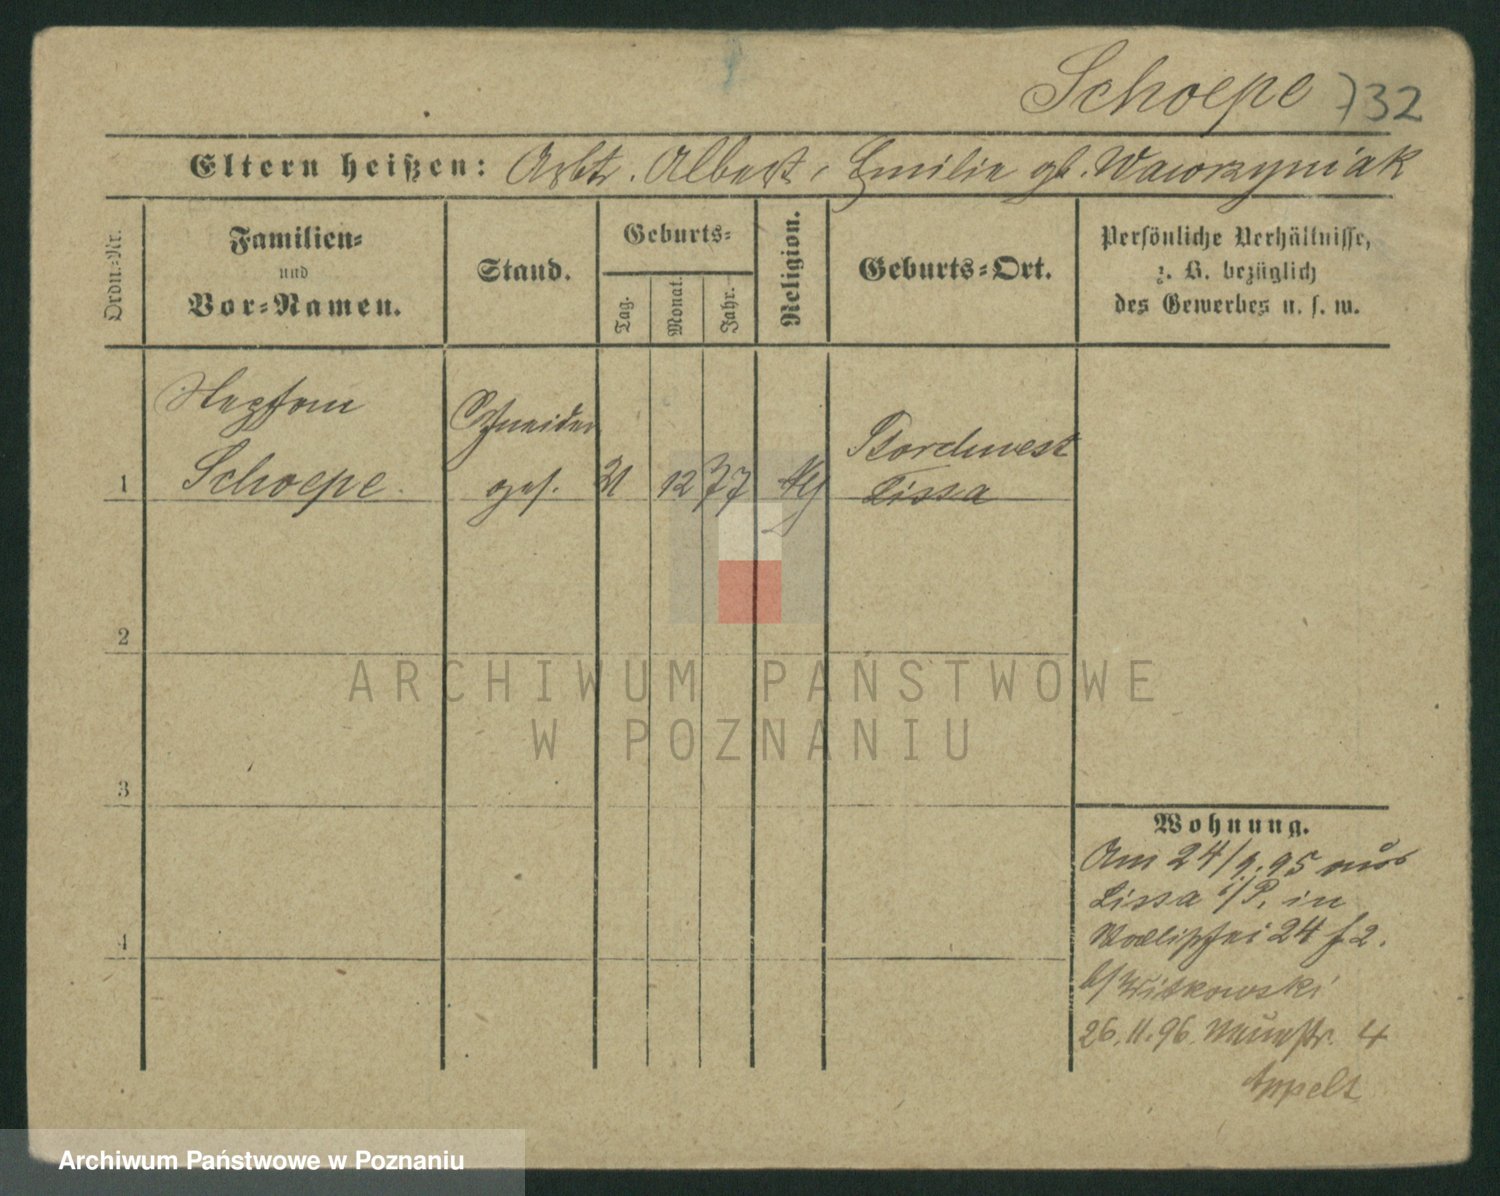 Schoepe 732
Eltern heißen: Arbtr. Albert, Emilie gb. Wawrzyniak
Ordn.-Nr.
Familien-
und
Vor-Namen.
Stand.
Geburts-
Tag.
Monat.
Jahr.
Religion.
Geburts-Ort.
Persönliche Verhältnisse,
z. B. bezüglich
des Gewerbes u. s. w.
Stephan
Schneider
Storchnest
1 Schoepe ges. 21 12 77 Lissa
2
3
4
ARCHIWUM PAŃSTWOWE
W POZNANIU
Wohnung.
Am 24/9.95 aus
Lissa i/P. in
24 2.
b/Witkowski
26.11.96. 4
Appelt
Archiwum Państwowe w Poznaniu